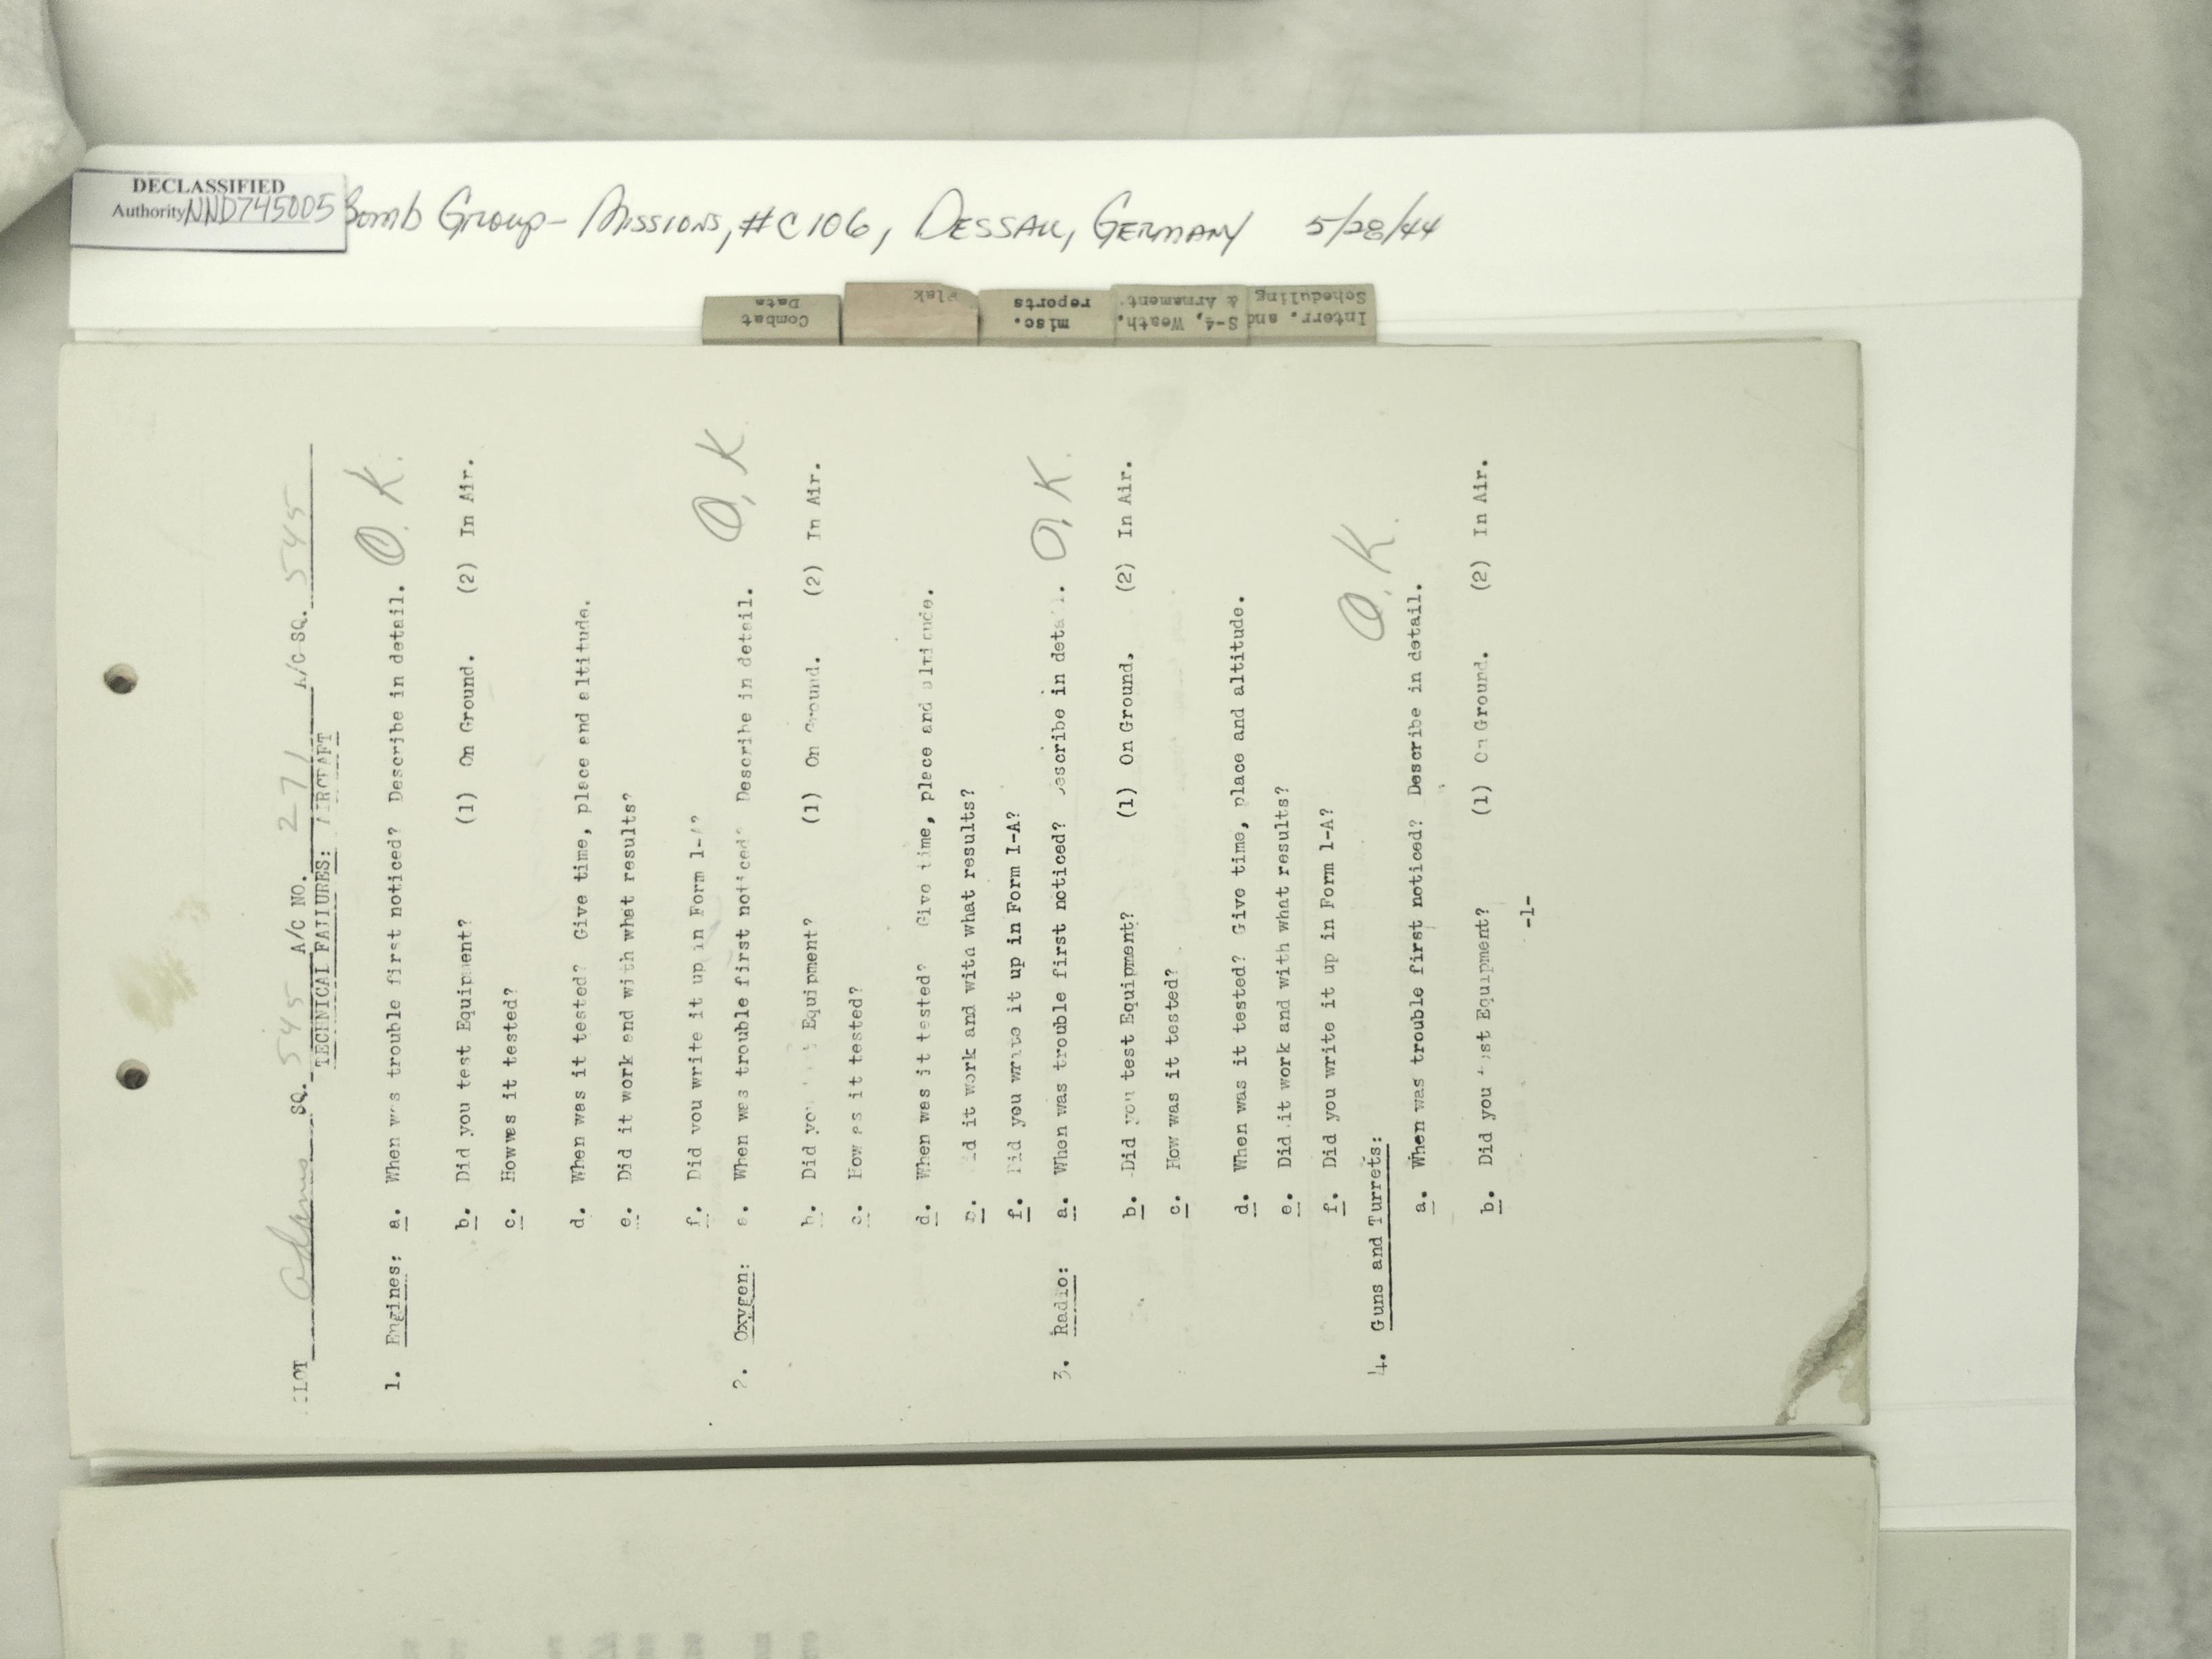 DECLASSIFIED
Authority NND745005
Bomb Group - Missions, #C106, Dessau, Germany 5/28/44
Combat Data
Flak
misc. reports
S-4, Weath. & Armament
Interr. and Scheduling
SQ. 545 A/C NO. 271 A/C SQ. 545
TECHNICAL FAILURES: AIRCRAFT
1. Engines: a. When was trouble first noticed? Describe in detail. O.K.
b. Did you test Equipment? (1) On Ground. (2) In Air.
c. How was it tested?
d. When was it tested? Give time, place and altitude.
e. Did it work and with what results?
f. Did you write it up in Form 1-A?
2. Oxygen: a. When was trouble first noticed? Describe in detail. O.K
b. Did you Equipment? (1) On Ground. (2) In Air.
c. How as it tested?
d. When was it tested? Give time, place and altitude.
e. Did it work and with what results?
f. Did you write it up in Form 1-A?
3. Radio: a. When was trouble first noticed? Describe in detail. O.K.
b. Did you test Equipment? (1) On Ground. (2) In Air.
c. How was it tested?
d. When was it tested? Give time, place and altitude.
e. Did it work and with what results?
f. Did you write it up in Form 1-A?
4. Guns and Turrets: O.K.
a. When was trouble first noticed? Describe in detail.
b. Did you test Equipment? (1) On Ground. (2) In Air.
-1-